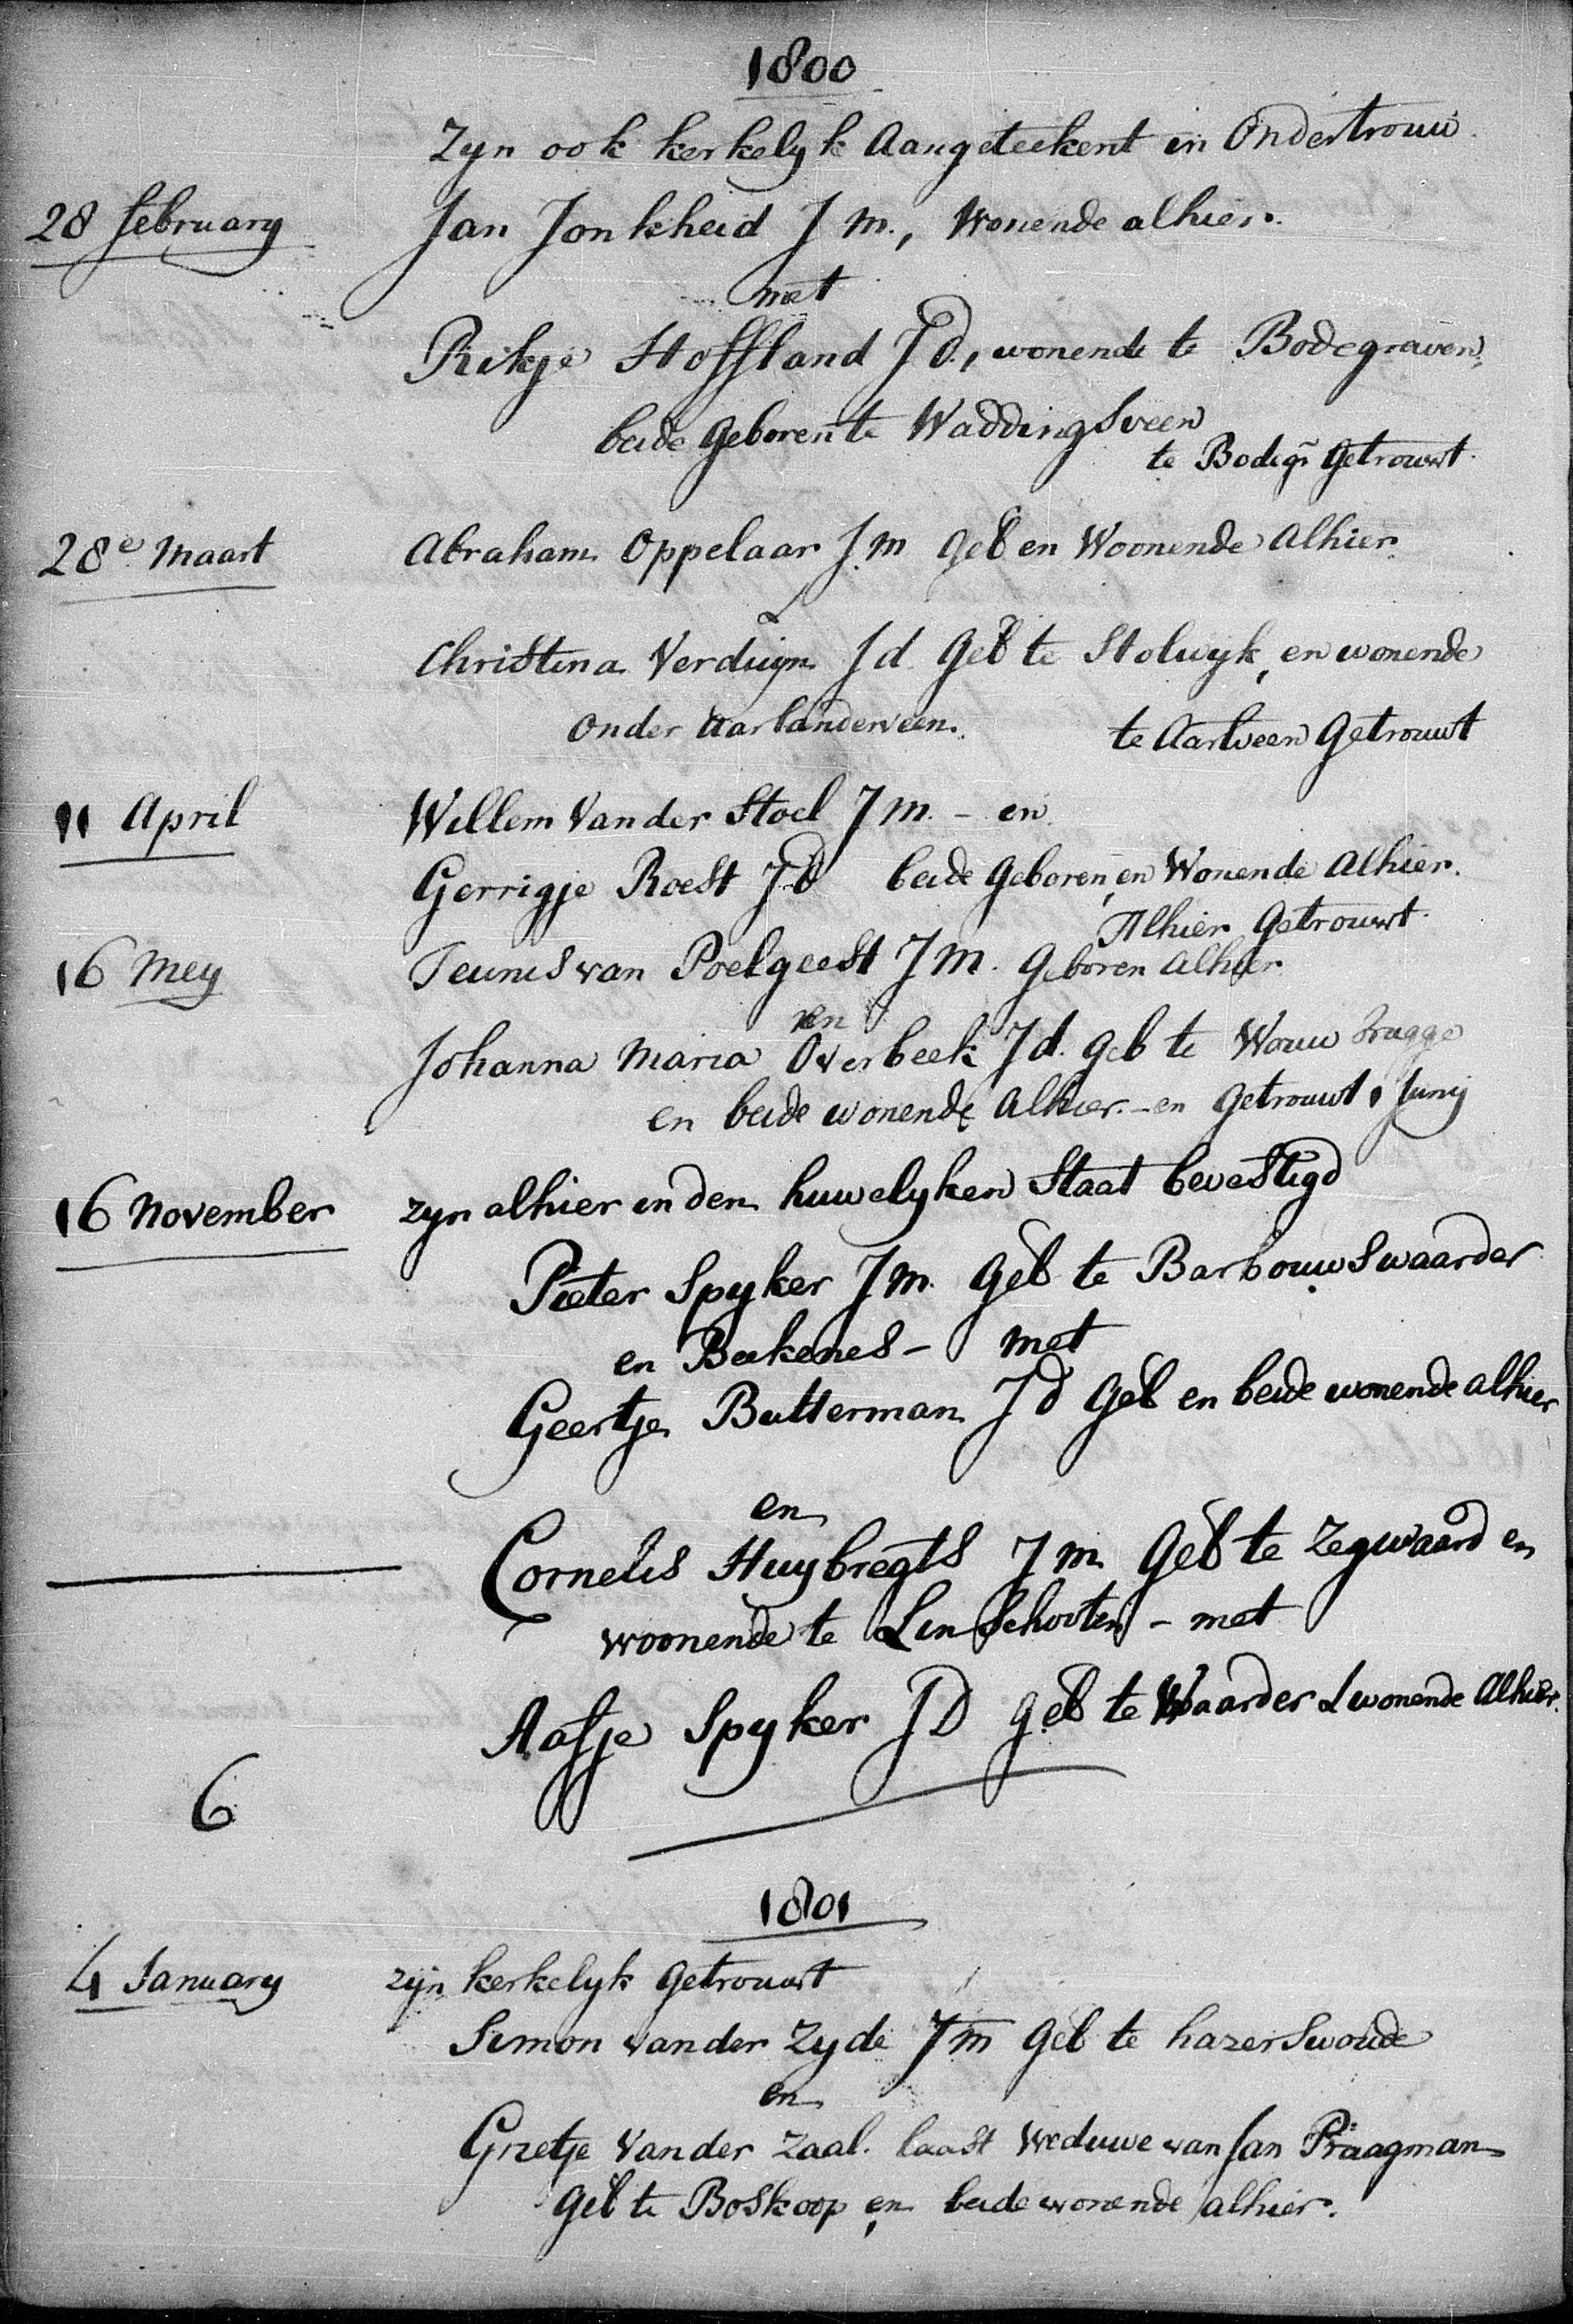 1800
Zyn ook kerkelyk Aangeteekent in Ondertrouw.
28 February Jan Jonkheid J m., Wonende alhier.
met
Rikje Stoffland J d., wonende te Bodegraven,
beide Geboren te WaddingSveen
te Bodegr. Getrouwt.
28e Maart Abraham Oppelaar J.m Geb en Woonende Alhier.
&
Christina Verduijn J d Geb te Stolwyk, en wonende
Onder Aarlanderveen. te Aarlveen Getrouwt
11 April Willem Van der Stoel J m. - en
Gerrigje RoeSt J d beide Geboren, en Wonende Alhier.
Alhier Getrouwt.
16 Mey Teunis van PoelgeeSt J m. Geboren Alhier
en
Johanna Maria Overbeek J d. Geb te Wouwbrugge
en beide wonende Alhier. - en Getrouwt 1 Junij
16 November zyn alhier in den huwelyken Staat beveStigd
Pieter Spyker J m. Geb te BarbouwSwaarder
en Beekenes - met
Geertje Butterman J d Geb en beide wonende alhier
en
Cornelis Huybregts J m Geb te Zegwaard en
woonende te LinSchooten - met
Aafje Spyker J D Geb te Waarder & wonende Alhier.
6
1801
4 January zijn kerkelyk Getrouwt
Simon van der Zyde J m Geb te hazerSwoude
en
Grietje Van der Zaal. laaSt Weduwe van Jan Praagman
Geb te BoSkoop, en beide wonende alhier.